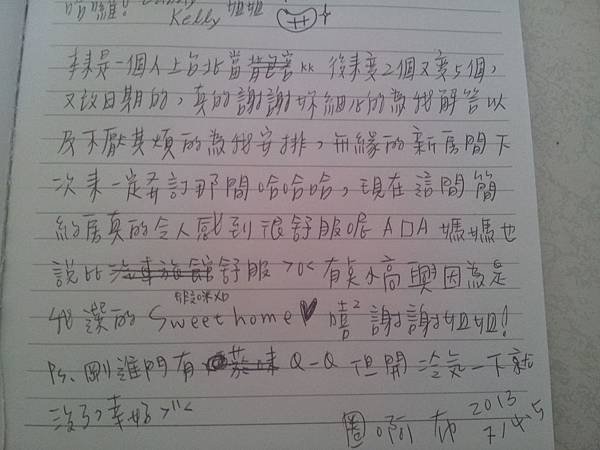 Kelly 姐姐
本來是一個人上台北當背包客 後來變2個又變5個,
又改日期的,真的謝謝妳細心的為我解答以
及不厭其煩的為我安排,無緣的新房間下
次來一定再訂那間哈哈哈,現在這間簡
約房真的令人感到很舒服喔 A口A 媽媽也
說比汽車旅館舒服 >口< 有點小高興因為是
我選的 Sweet home 嘻² 謝謝姐姐!
Ps. 剛進門有菸味 Q-Q 但開冷氣一下就
沒了,幸好 >"<
2013
7/4.5